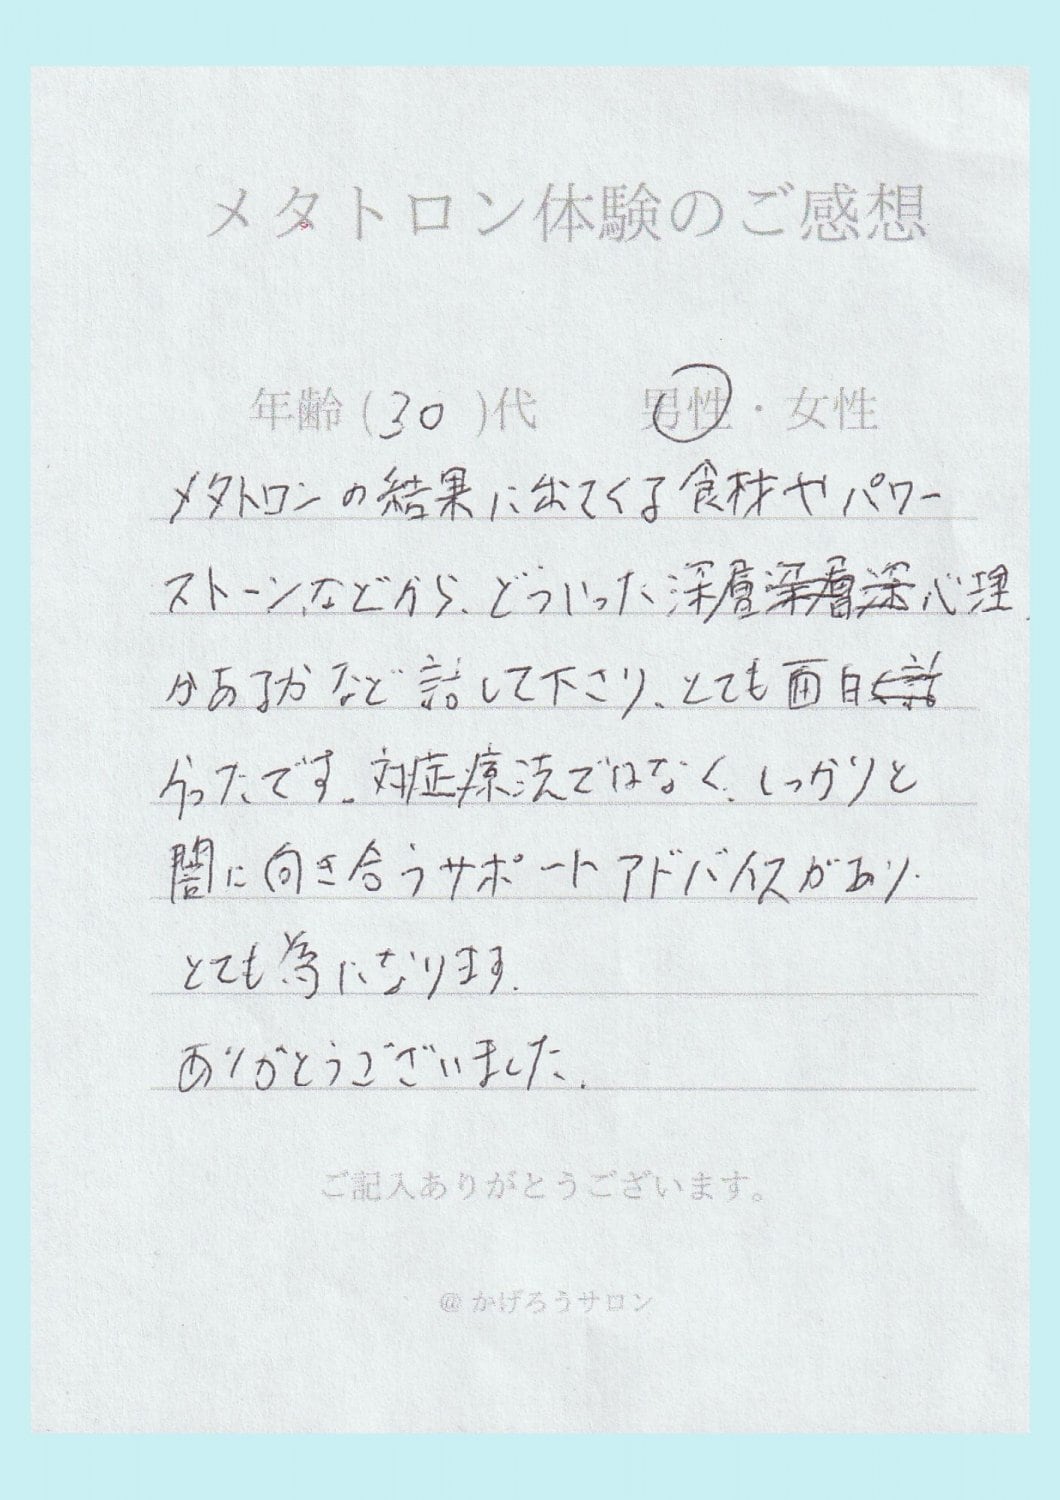 メタトロン体験のご感想
年齢(30)代 男性・女性
メタトロンの結果に出てくる食材やパワー
ストーンなどから、どういった深層心理
があるかなど話して下さり、とても面白
かったです。対症療法ではなく、しっかりと
闇に向き合うサポートアドバイスがあり、
とても為になります。
ありがとうございました。
ご記入ありがとうございます。
@かげろうサロン